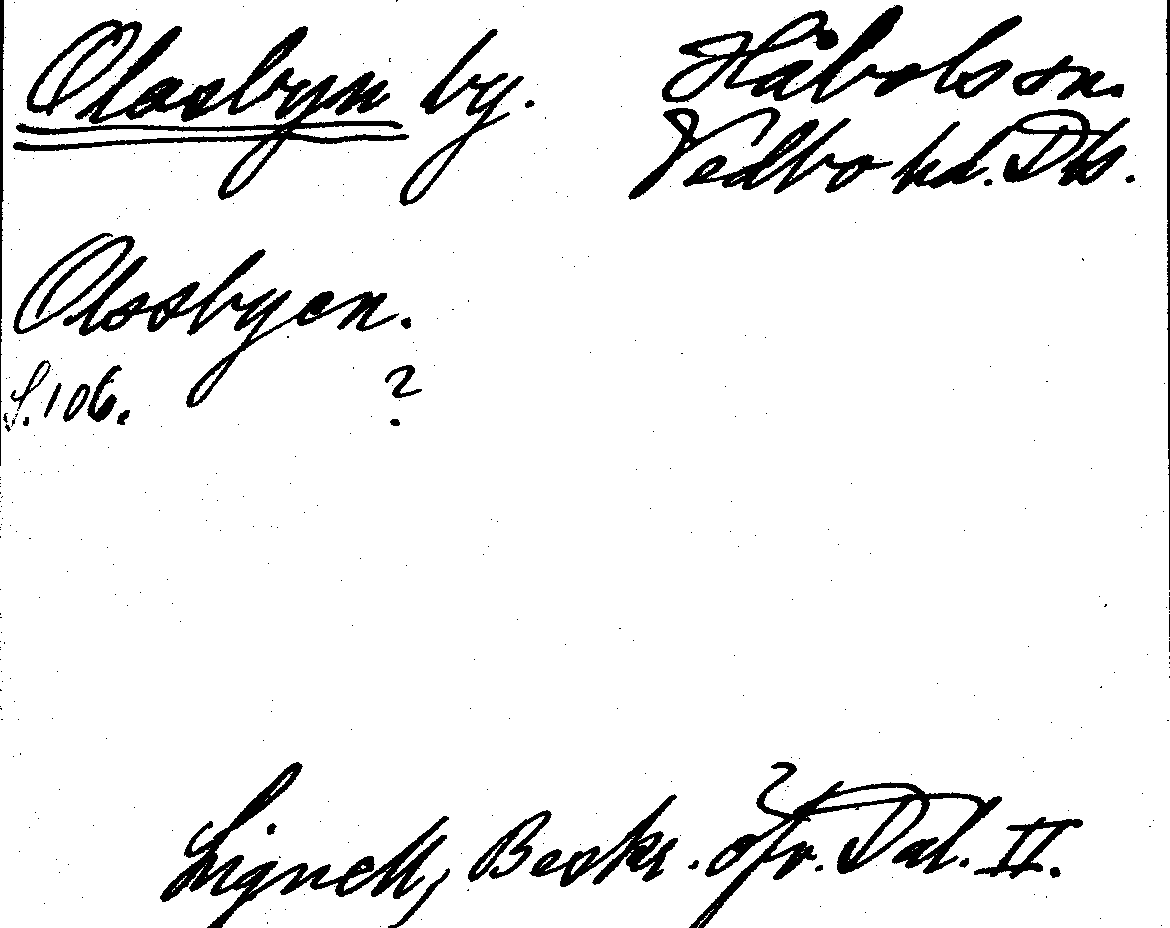 Olasbyn by. Håbolssn.
Vedbo hd. Dls.
Olssbyen.
S. 106. ?
Lignell, Beskr. öfv. Dal. II.